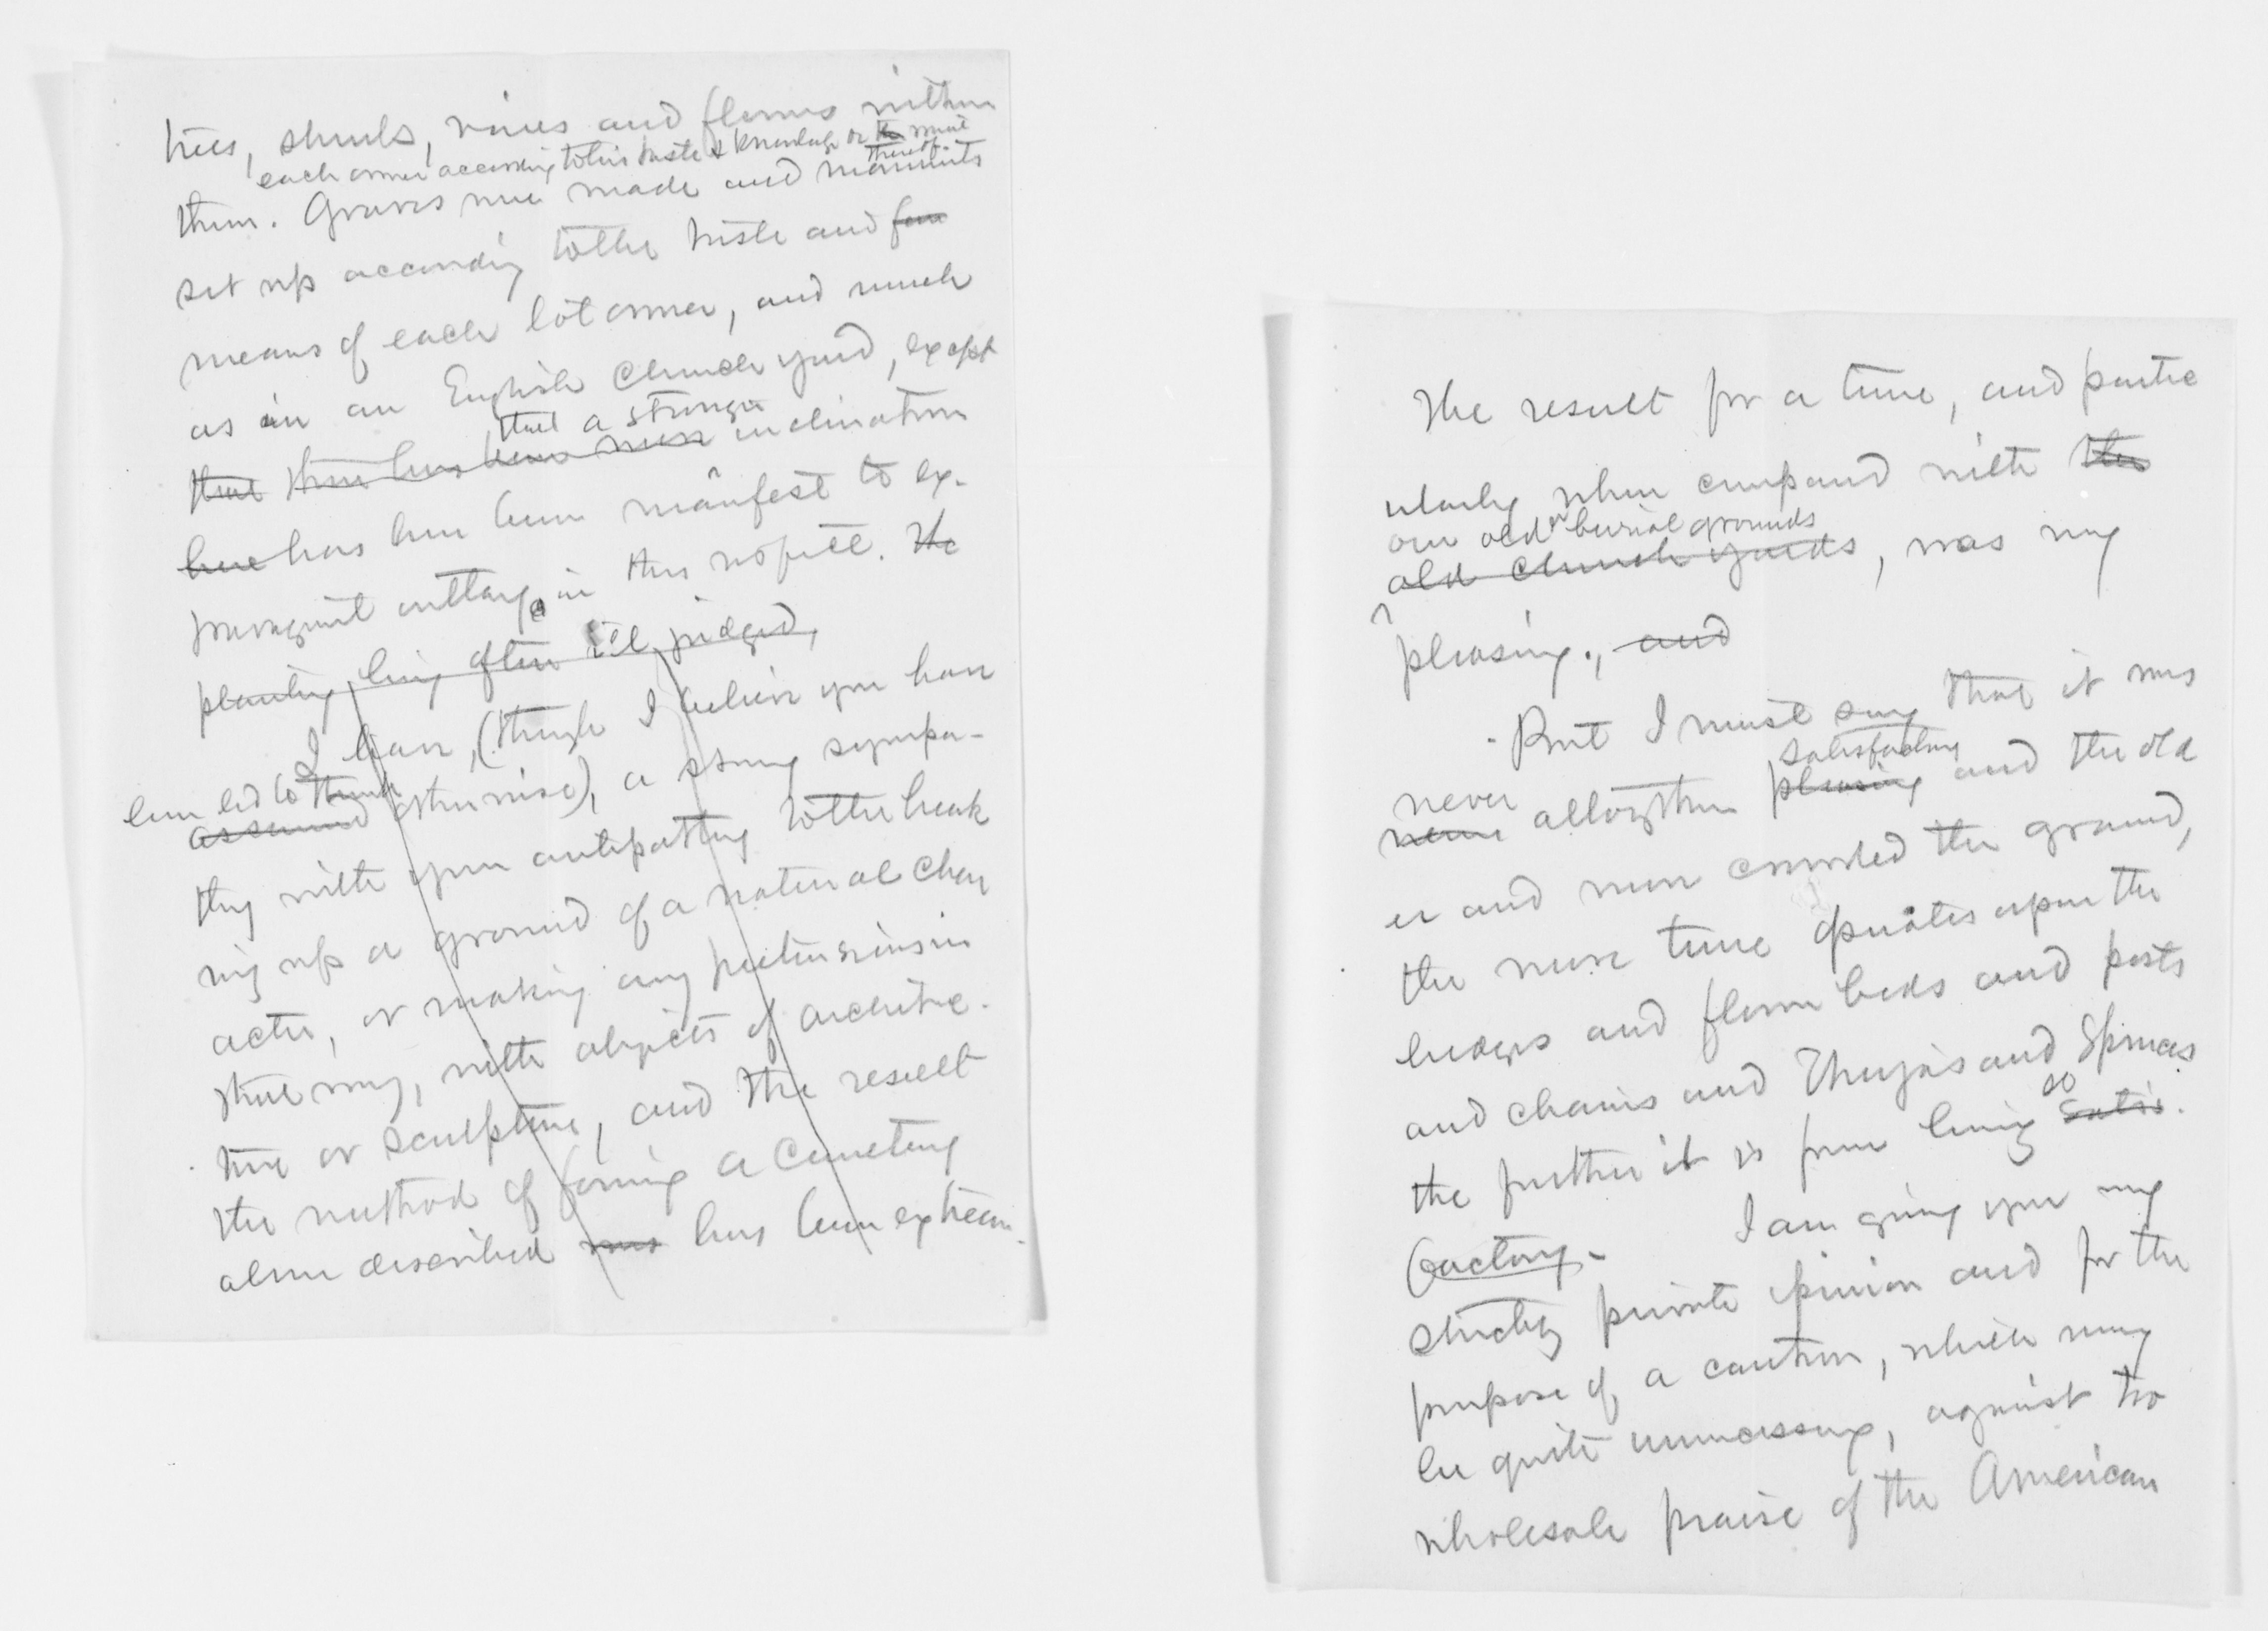 trees, shrubs, vines and flowers within
each owner according to his taste & knowledge or the want
thereof.
them. Graves were made and monuments
set up according to the taste and
means of each lot owner, and much
as in an English Church yard, except
that a stronger
that there has been more inclination
here has been manifest to ex-
travagant outlay in this respect. The
planting being often ill judged,
I have, (though I believe you have
been led to think
assumed otherwise), a strong sympa-
thy with your antipathy to the break
ing up a ground of a natural char
acter, or making any pretensions in
that way, with objects of architec-
ture or sculpture, and the result
the method of forming a Cemetery
above described was has been extrem-
The result for a time, and partic
ularly when compared with the
our old burial grounds
old church yards, was very
pleasing., and
But I must say that it was
satisfactory
never
never altogether pleasing and the old
er and more crowded the ground,
the more time operates upon the
hedges and flower beds and posts
and chains and Thuyas and Spruces
so
the further it is from being satis.
factory. I am giving you my
strictly private opinion and for the
purpose of a caution, which may
be quite unnecessary, against too
wholesale praise of the American